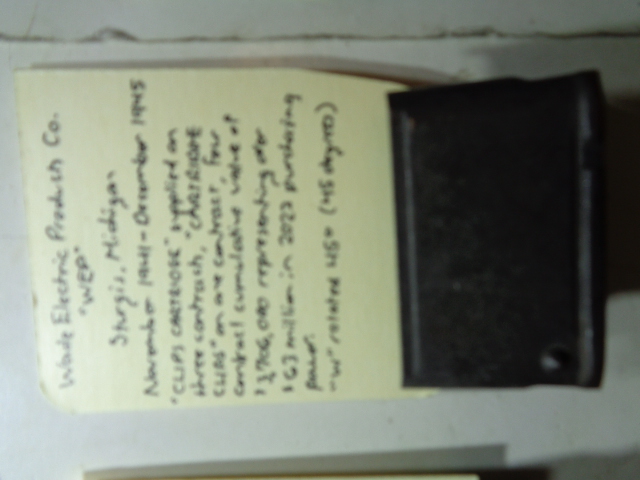 Wade Electric Products Co.
"WEP"
Sturgis, Michigan
November 1941 - December 1945
"CLIPS CARTRIDGE" supplied on
three contracts, "CARTRIDGE
CLIPS" on one contract, four
contract cumulative value of
$3,906,000 representing over
$63 million in 2023 purchasing
power.
"W" rotated 45° (45 degrees)